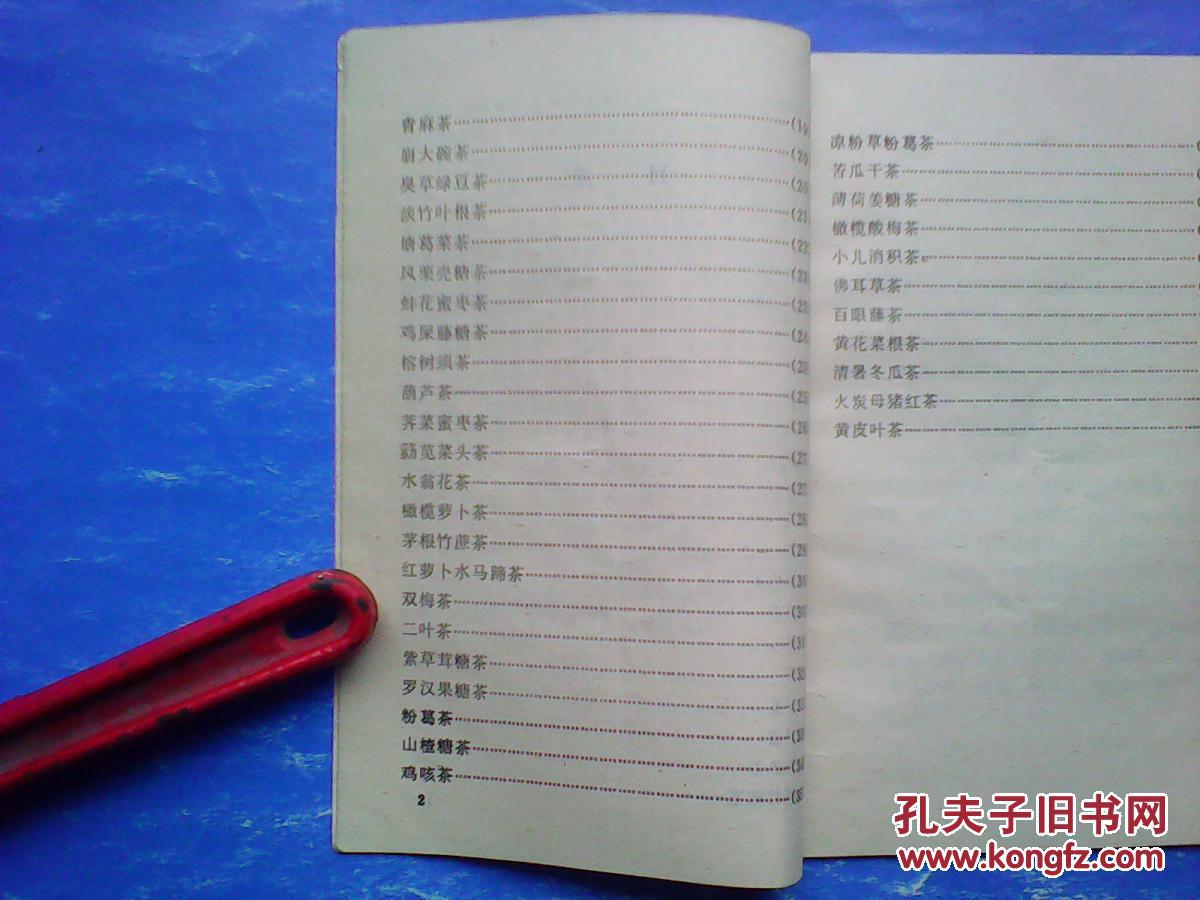 青麻茶……(19)
崩大碗茶……(20
臭草绿豆茶……(20
淡竹叶根茶……(21
塘葛菜茶……(22
风栗壳糖茶……(23
蚌花蜜枣茶……(23
鸡屎藤糖茶……(24
榕树须茶……(25
葫芦茶……(25
荠菜蜜枣茶……(26
簕苋菜头茶……(27
水翁花茶……(27
橄榄萝卜茶……(28
茅根竹蔗茶……(29
红萝卜水马蹄茶……(30
双梅茶……(30
二叶茶……(31
紫草茸糖茶……(32
罗汉果糖茶……(33
粉葛茶……(33
山楂糖茶……(34
鸡咳茶……(35
2
凉粉草粉葛茶……
苦瓜干茶……
薄荷姜糖茶……
橄榄酸梅茶……
小儿消积茶……
佛耳草茶……
百眼藤茶……
黄花菜根茶……
清暑冬瓜茶……
火炭母猪红茶……
黄皮叶茶……
孔夫子旧书网
www.kongfz.com